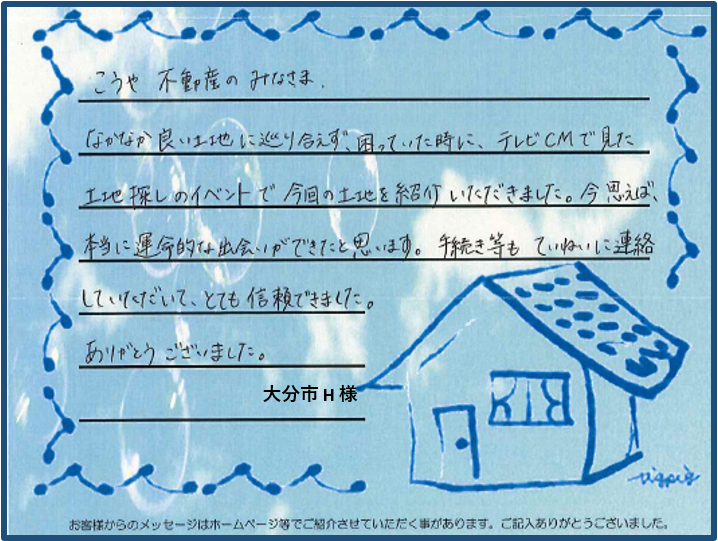 こうや 不動産の みなさま、
なかなか良い土地に巡り合えず、困っていた時に、テレビCMで見た
土地探しのイベントで今回の土地を紹介いただきました。今思えば、
本当に運命的な出会いができたと思います。手続き等もていねいに連絡
していただいて、とても信頼できました。
ありがとうございました。
大分市 H 様
お客様からのメッセージはホームページ等でご紹介させていただく事があります。ご記入ありがとうございました。